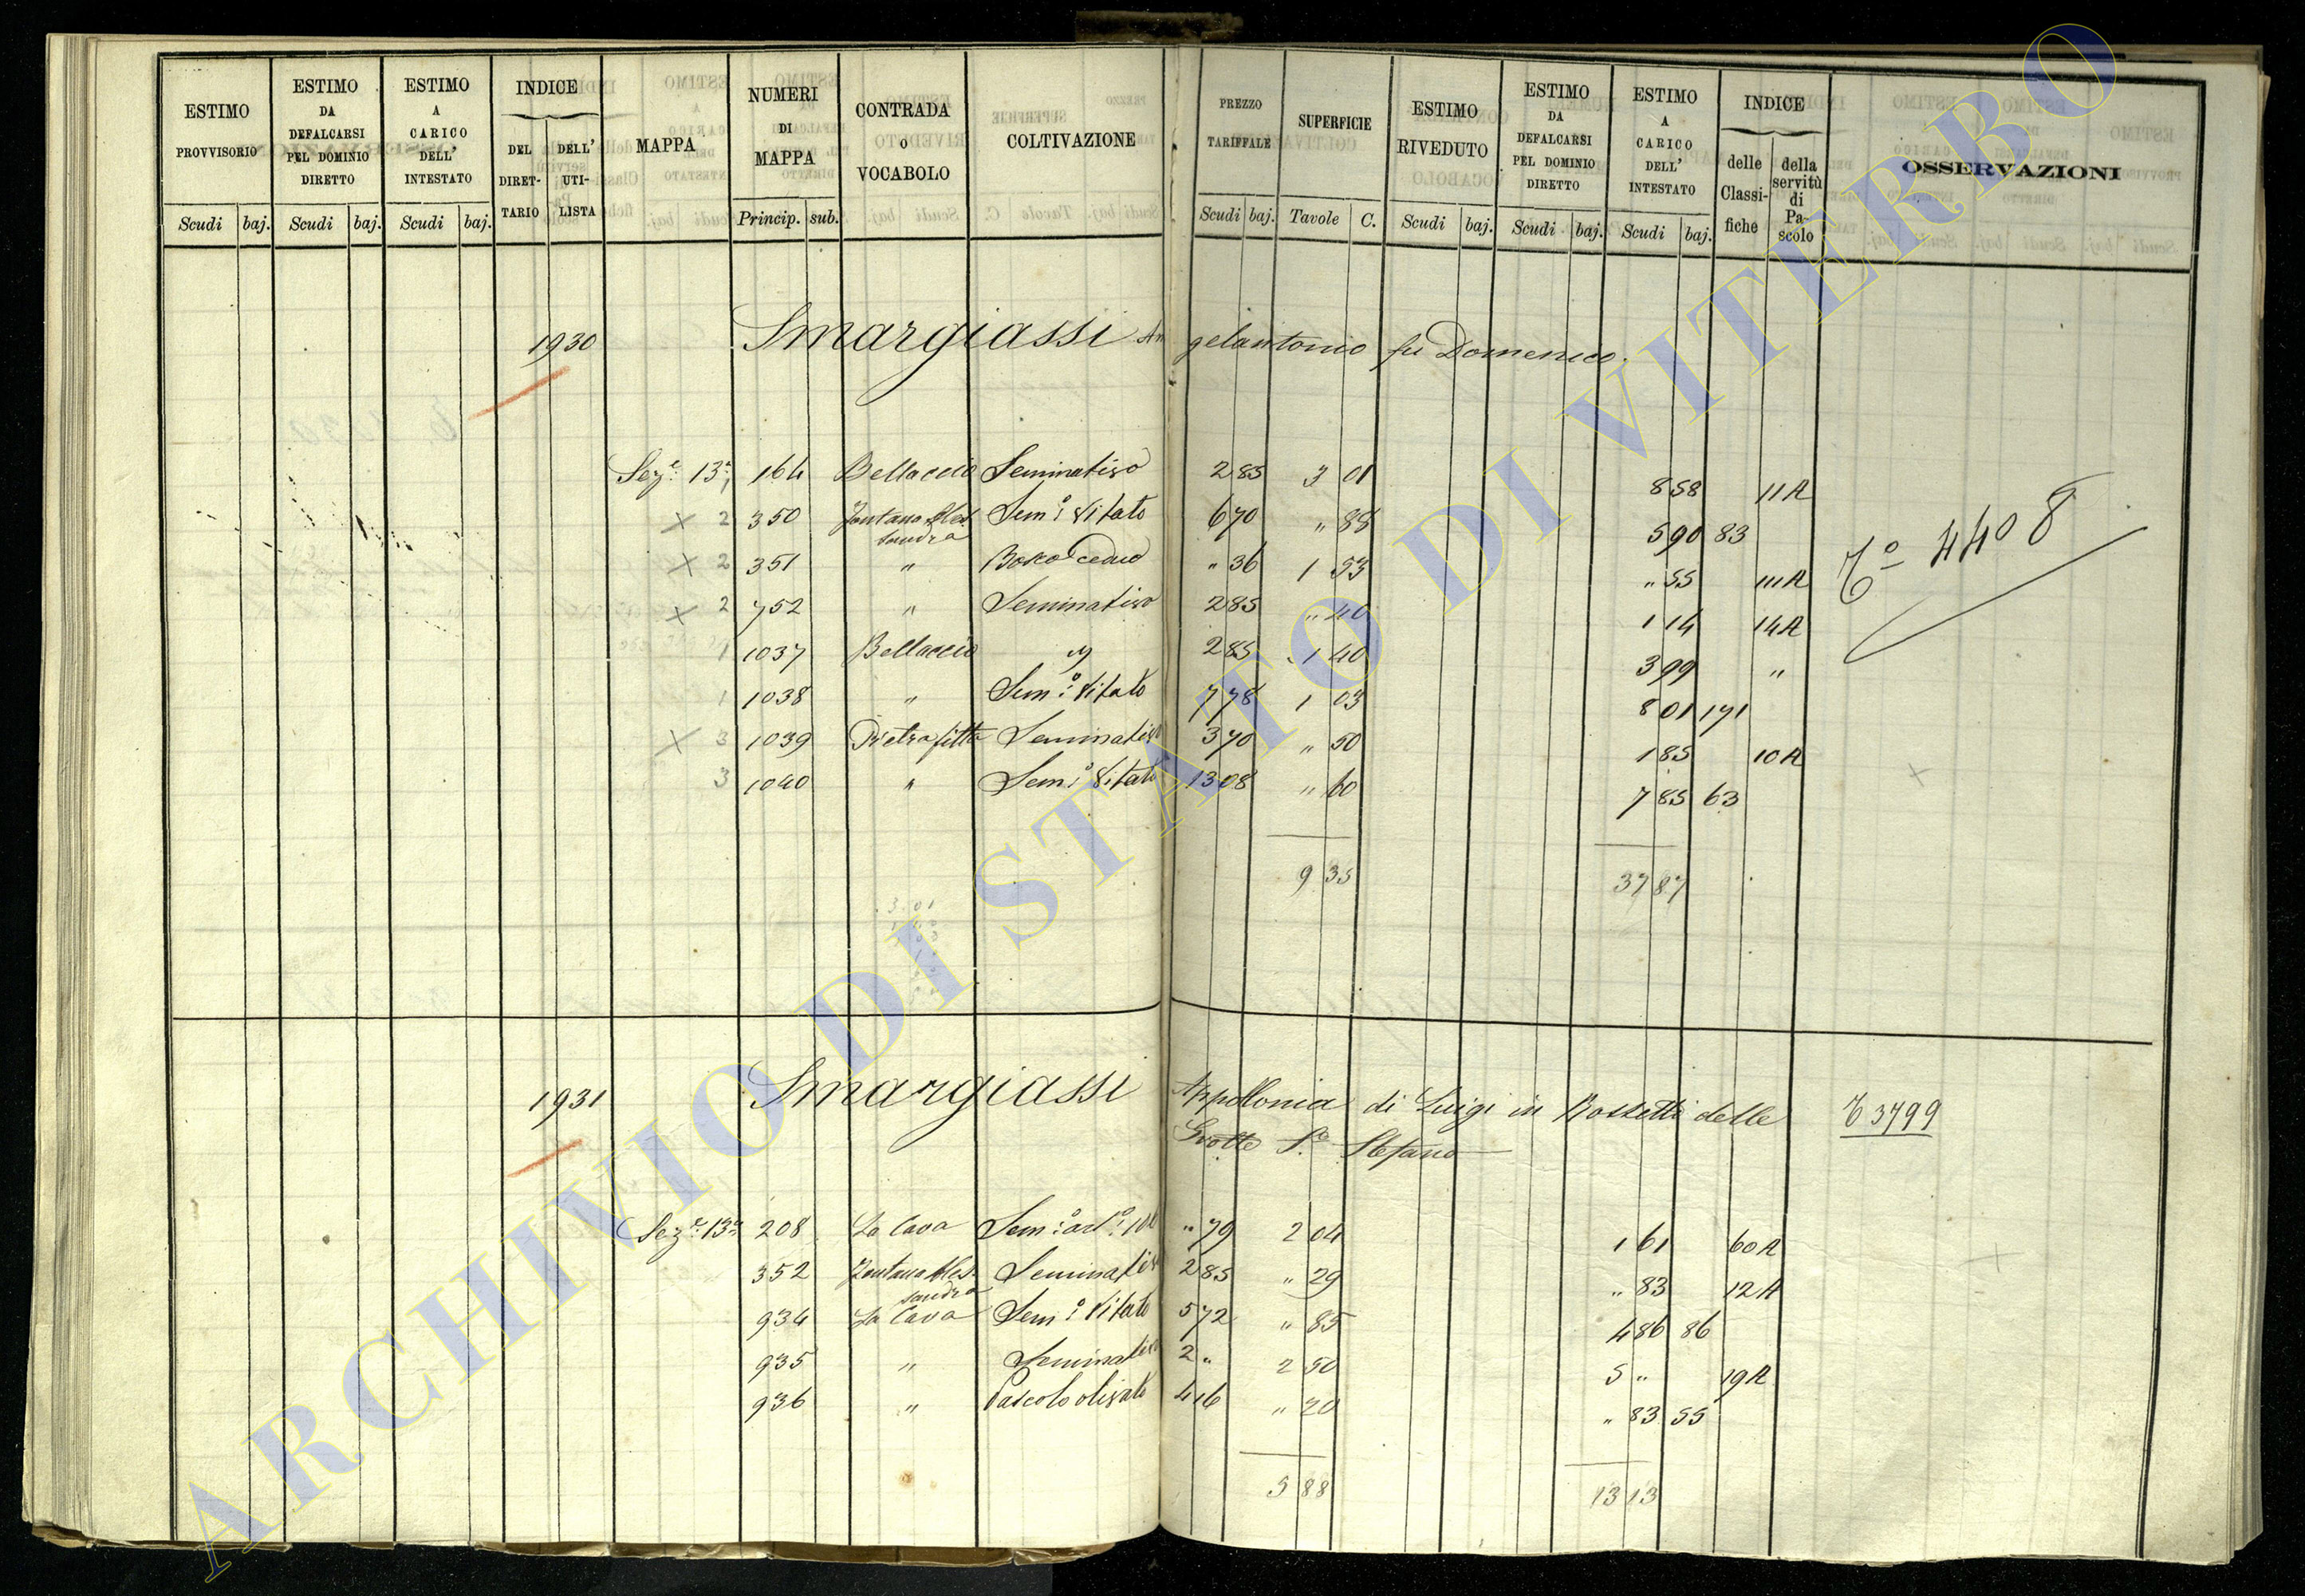 ESTIMO PROVVISORIO
ESTIMO DA DEFALCARSI PEL DOMINIO DIRETTO
ESTIMO A CARICO DELL' INTESTATO
INDICE
DEL DIRETTARIO
DELL' UTILISTA
MAPPA
NUMERI DI MAPPA
CONTRADA O VOCABOLO
COLTIVAZIONE
PREZZO TARIFFALE
SUPERFICIE
ESTIMO RIVEDUTO
ESTIMO DA DEFALCARSI PEL DOMINIO DIRETTO
ESTIMO A CARICO DELL' INTESTATO
INDICE
delle Classifiche
della servitù di Pascolo
OSSERVAZIONI
Scudi baj. Scudi baj. Scudi baj. Princip. sub. Scudi baj. Tavole C. Scudi baj. Scudi baj. Scudi baj.
1930 Smargiassi Angelantonio fu Domenico.
Sez.e 13a 1 164 Bellaccio Seminativo 2 85 3 01 8 58 11A
X 2 350 Fontana Alessandra Sem.o Vitato 6 70 " 88 5 90 83
X 2 351 " Bosco ceduo " 36 1 53 " 55 111A
X 2 752 " Seminativo 2 85 " 40 1 14 14A
1 1037 Bellaccio " 2 85 1 40 3 99 "
1 1038 " Sem.o Vitato 7 78 1 03 8 01 171
X 3 1039 Pietrafitta Seminativo 3 70 " 50 1 85 10A
3 1040 " Sem.o Vitato 13 08 " 60 7 85 63
To 4408
9 35 37 87
1931 Smargiassi Appollonia di Luigi in Bossetti delle
Grotte S.o Stefano
T 3799
Sez.e 13a 208 La Cava Sem.o arb.o " 79 2 04 1 61 60A
352 Fontana Alessandra Seminativo 2 85 " 29 " 83 12A
934 La Cava Sem.o Vitato 5 72 " 85 4 86 86
935 " Seminativo 2 " 2 50 5 " 19A
936 " Pascolo olivato 4 16 " 20 " 83 55
5 88 13 13
ARCHIVIO DI STATO DI VITERBO